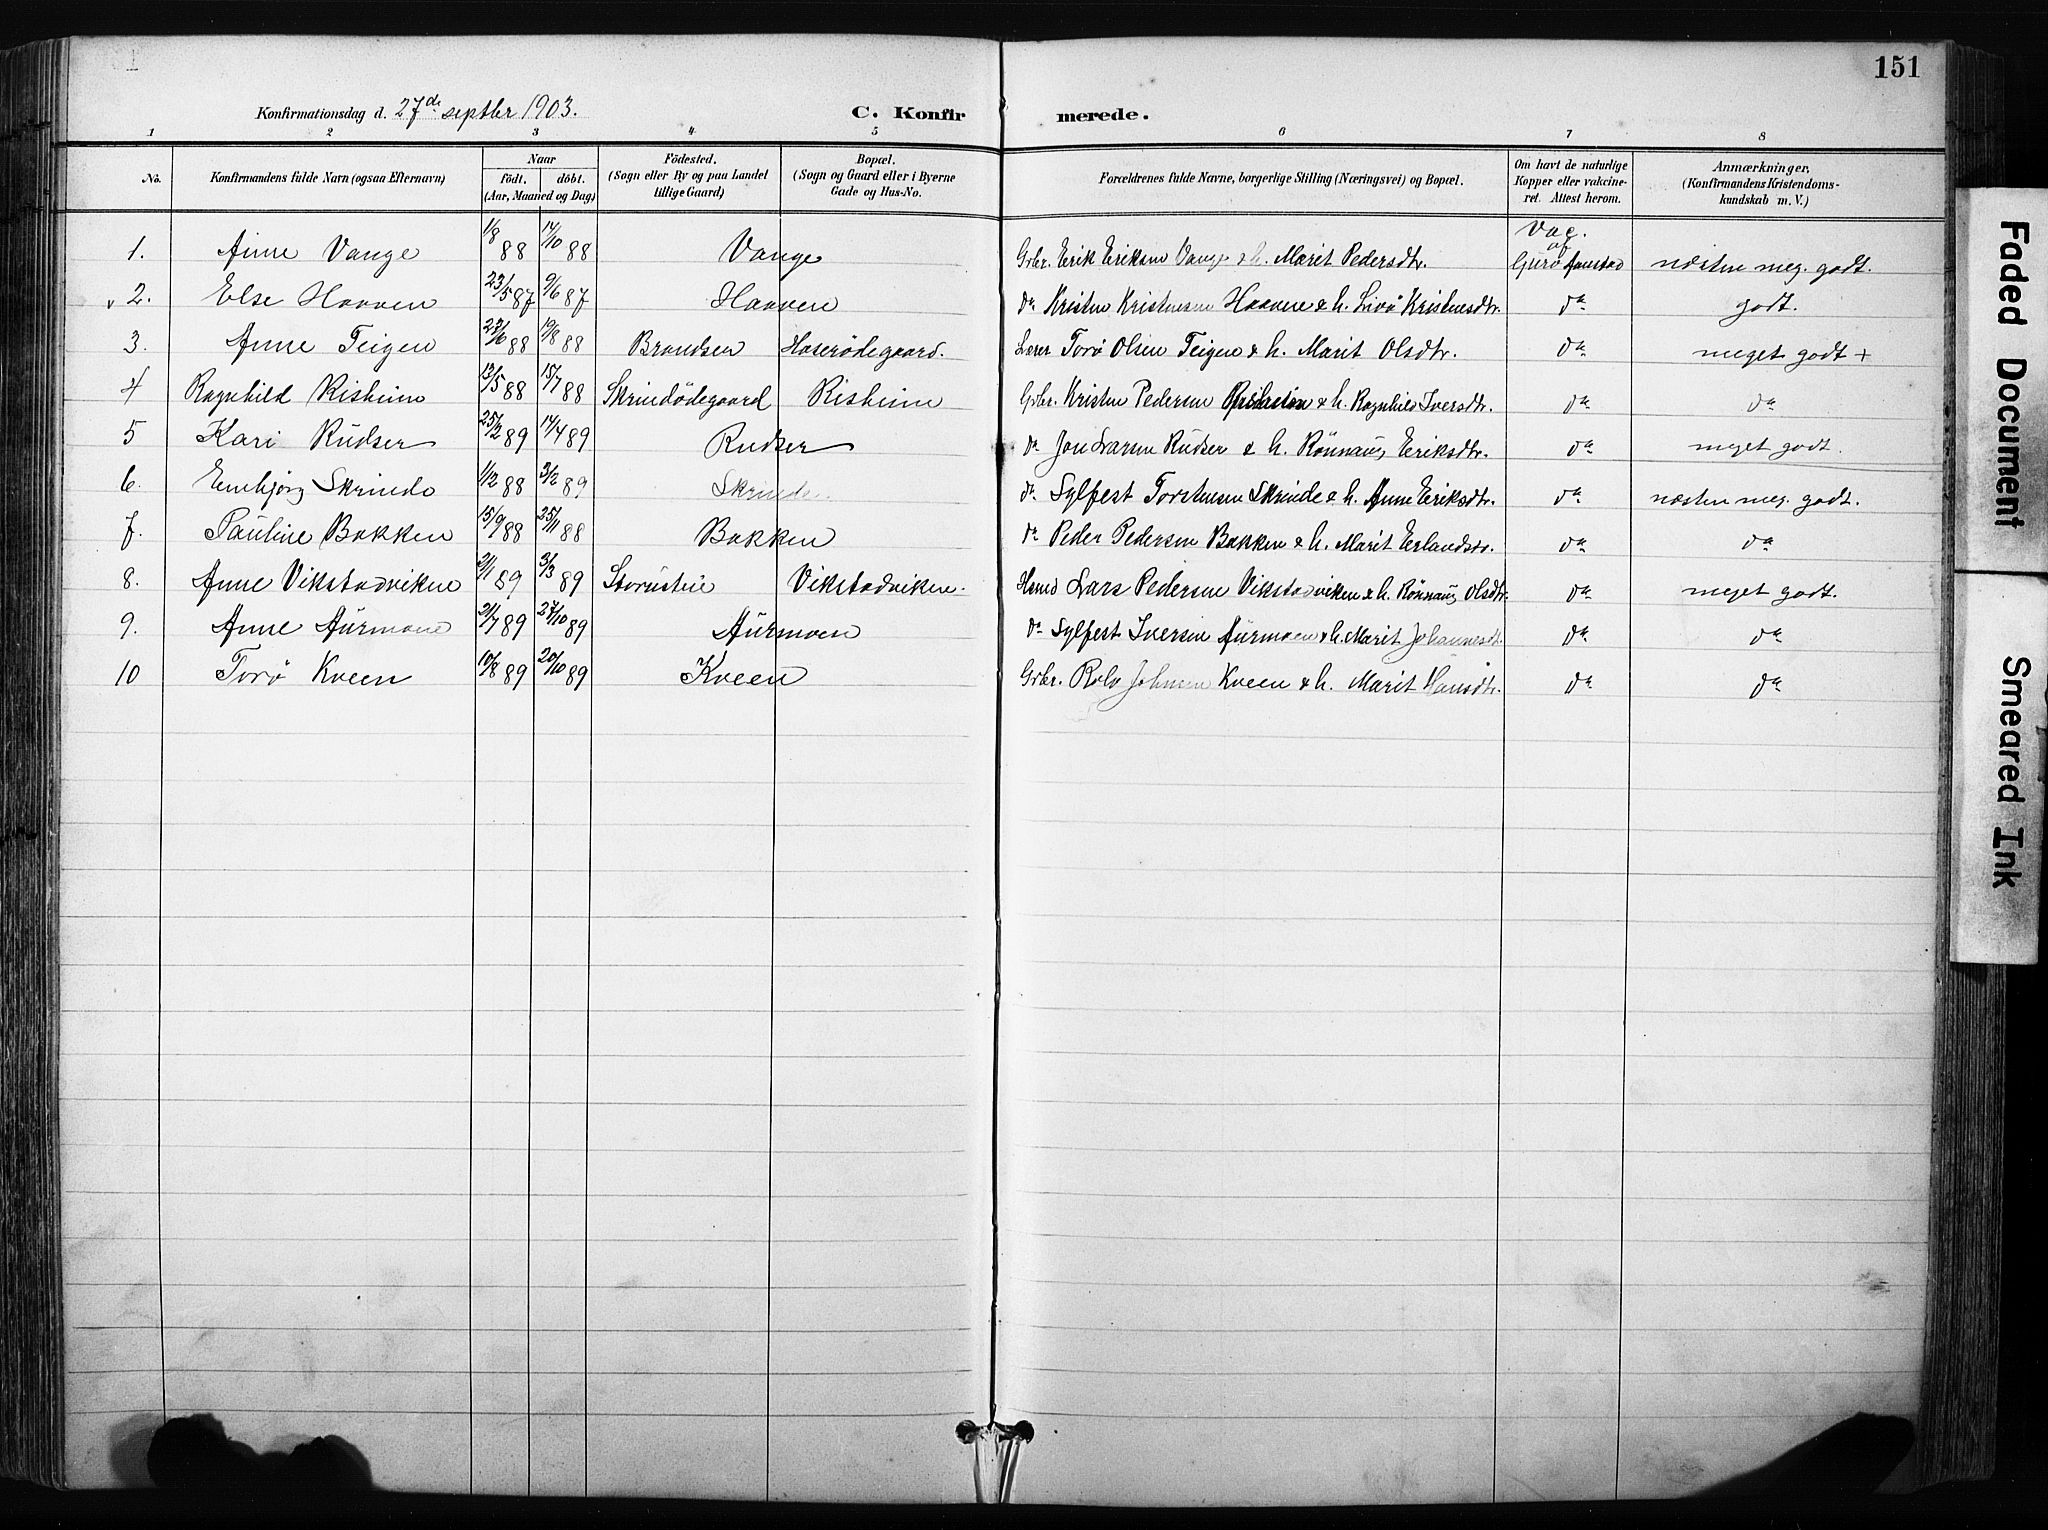 151
Konfirmationsdag d. 27de septbr 1903. C. Konfirmerede.
1 2 3 4 5 6 7 8
No. Konfirmandens fulde Navn (ogsaa Efternavn) Naar født. døbt. (Aar, Maaned og Dag) Fødested. (Sogn eller By og paa Landet tillige Gaard) Bopæl. (Sogn og Gaard eller i Byerne Gade og Hus-No. Forældrenes fulde Navne, borgerlige Stilling (Næringsvei) og Bopæl. Om havt de naturlige Kopper eller vakcineret. Attest herom. Anmærkninger, (Konfirmandens Kristendomskundskab m. V.)
1. Anne Vange 1/8 88 14/10 88 Vange Gbr. Erik Eriksen Vange & h. Marit Pedersdtr. Vac. af Guro Aanstad næsten meg. godt.
2. Else Haaven 23/5 87 9/6 87 Haaven do Kristen Kristensen Haaven & h. Livø Kristensdtr. do godt.
3. Anne Teigen 27/6 88 19/8 88 Brandsar Haserødegaard. Lærer Torø Olsen Teigen & h. Marit Olsdtr. do meget godt +
4 Ragnhild Risheim 13/5 88 15/7 88 Skrindødegaard Risheim Gbr. Kristen Pedersen & h. Ragnhild Iversdtr. do do
5 Kari Rudser 25/2 89 14/4 89 Rudser do Jon Larsen Rudser & h. Rønnaug Eriksdtr. do meget godt.
6. Embjørg Skrinde 1/12 88 3/2 89 Skrinde do Sylfest Torstensen Skrinde & h. Anne Eriksdtr. do næsten meg. godt.
7. Pauline Bakken 15/9 88 25/11 88 Bakken do Peder Pedersen Bakken & h. Marit Erlandsdtr. do do
8. Anne Vikstadviken 2/1 89 3/3 89 Storusteie Vikstadviken. Hsmd Lars Pedersen Vikstadviken & h. Rønnaug Olsdtr. do meget godt.
9. Anne Aurmoen 21/7 89 27/10 89 Aurmoen do Sylfest Iversen Aurmoen & h. Marit Johannesdt. do do
10 Torø Kveen 10/8 89 20/10 89 Kveen Gbr. Rolv Johnsen Kveen & h. Marit Hansdtr. do do
Faded Document
Smeared Ink